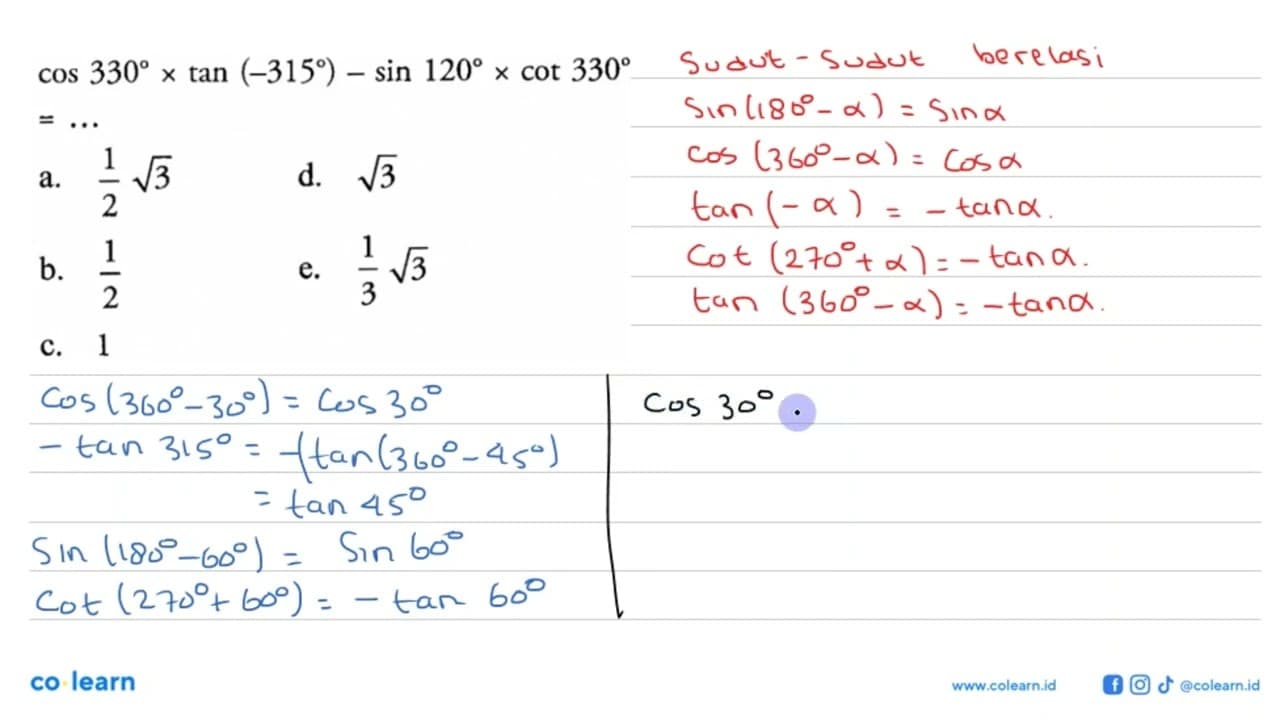 cos 330° × tan (–315°) – sin 120° × cot 330°
= ...
a. 1/2 √3
d. √3
b. 1/2
e. 1/3 √3
c. 1
Sudut - Sudut berelasi
Sin(180° - α) = Sin α
cos (360° - α) = cos α
tan (- α) = - tan α.
Cot (270° + α) = - tan α.
tan (360° - α) = - tan α.
Cos (360° - 30°) = Cos 30°
- tan 315° = -(tan(360° - 45°)
= tan 45°
Sin (180° - 60°) = Sin 60°
Cot (270° + 60°) = - tan 60°
Cos 30° .
co·learn
www.colearn.id
@colearn.id